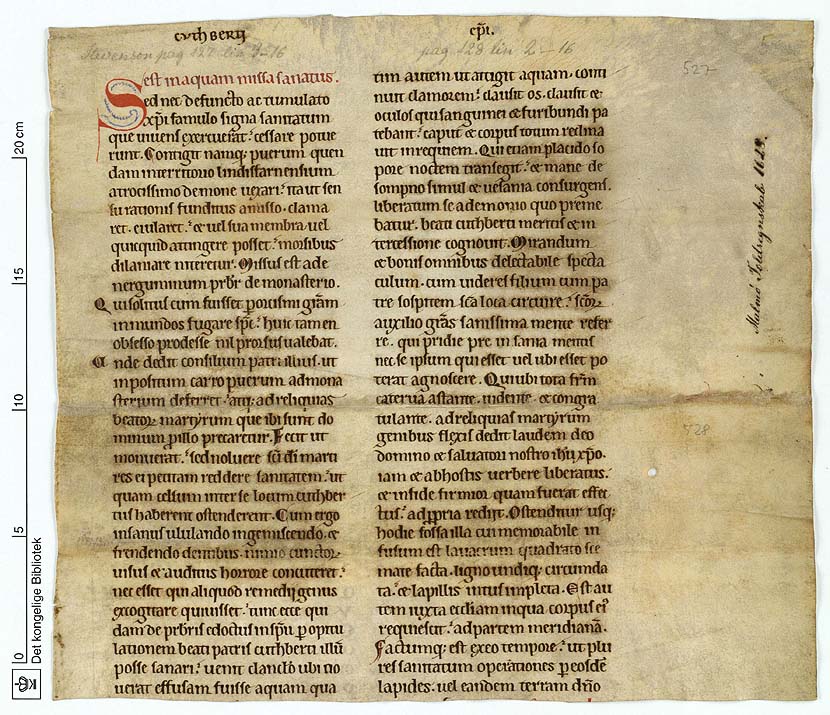 cuthberti
epi.
Stevenson pag 127 lin 3-16
pag 128 lin 2-16
5
527
est in aquam missa sanatus.
Sed nec defuncto ac tumulato
xpi famulo signa sanitatum
que uiuens exercuerat cessare potue
runt. Contigit namq; puerum quen
dam in territorio lindissarnensium
atrocissimo demone uexari. ita ut sen
su rationis funditus amisso. clama
ret. eiularet. et uel sua membra, uel
quicquid attingere posset. morsibus
dilaniare niteretur. Missus est ad e
nerguminum prbr de monasterio.
Qui solitus cum fuisset per exorcismi gram
inmundos fugare spc. huic tamen
obsesso prodesse nil prorsus ualebat.
Unde dedit consilium patri illius. ut
inpositum carro puerum ad mona
sterium deferret. atq; ad reliquias
beator martyrum que ibi sunt do
minum p illo precaretur. Fecit ut
monuerat. sed noluere sci di marti
res ei petitam reddere sanitatem. ut
quam celsum inter se locum cuthber
tus haberent ostenderent. Cum ergo
insanus ululando ingemiscendo. et
frendendo dentibus. nimio cunctor
uisus et auditus horrore concuteret.
nec esset qui aliquod remedii genus
excogitare quiuisset. tunc ecce qui
dam de prbris edoctus in spu p opitu
lationem beati patris cuthberti illu
posse sanari. uenit clanculo ubi no
uerat effusam fuisse aquam qua
tim autem ut attigit aquam. conti
nuit clamorem. clausit os. clausit et
oculos qui sanguinei et furibundi pa
tebant. caput et corpus totum reclina
uit in requiem. Qui etiam placido so
pore noctem transegit. et mane de
sompno simul et uesania consurgens.
liberatum se a demonio quo preme
batur. beati cuthberti meritis et in
tercessione cognouit. Mirandum
et bonis omnibus delectabile specta
culum. cum uideres filium cum pa
tre sospitem sca loca circuire. scor
auxilio gras sanissima mente refer
re. qui pridie pre insania mentis
nec se ipsum qui esset uel ubi esset po
terat agnoscere. Qui ubi tota frm
caterua astante. uidente. et congra
tulante. ad reliquias martyrum
genibus flexis dedit laudem deo
domino et saluatori nostro ihu xpo.
iam et ab hostis uerbere liberatus.
et in fide firmior quam fuerat effec
tus. ad ppria rediit. Ostenditur usq;
hodie fossa illa cui memorabile in
fusum est lauacrum quadrato sce
mate facta. ligno undiq; circumda
ta. et lapillis intus impleta. Est au
tem iuxta eccliam in qua corpus ei
requiescit. ad partem meridiana.
Factumq; est ex eo tempore. ut plu
res sanitatum operationes p eosde
lapides. uel eandem terram dno
528
Malmö Toldregnskab 1623.
20 cm
15
10
5
0
Det kongelige Bibliotek